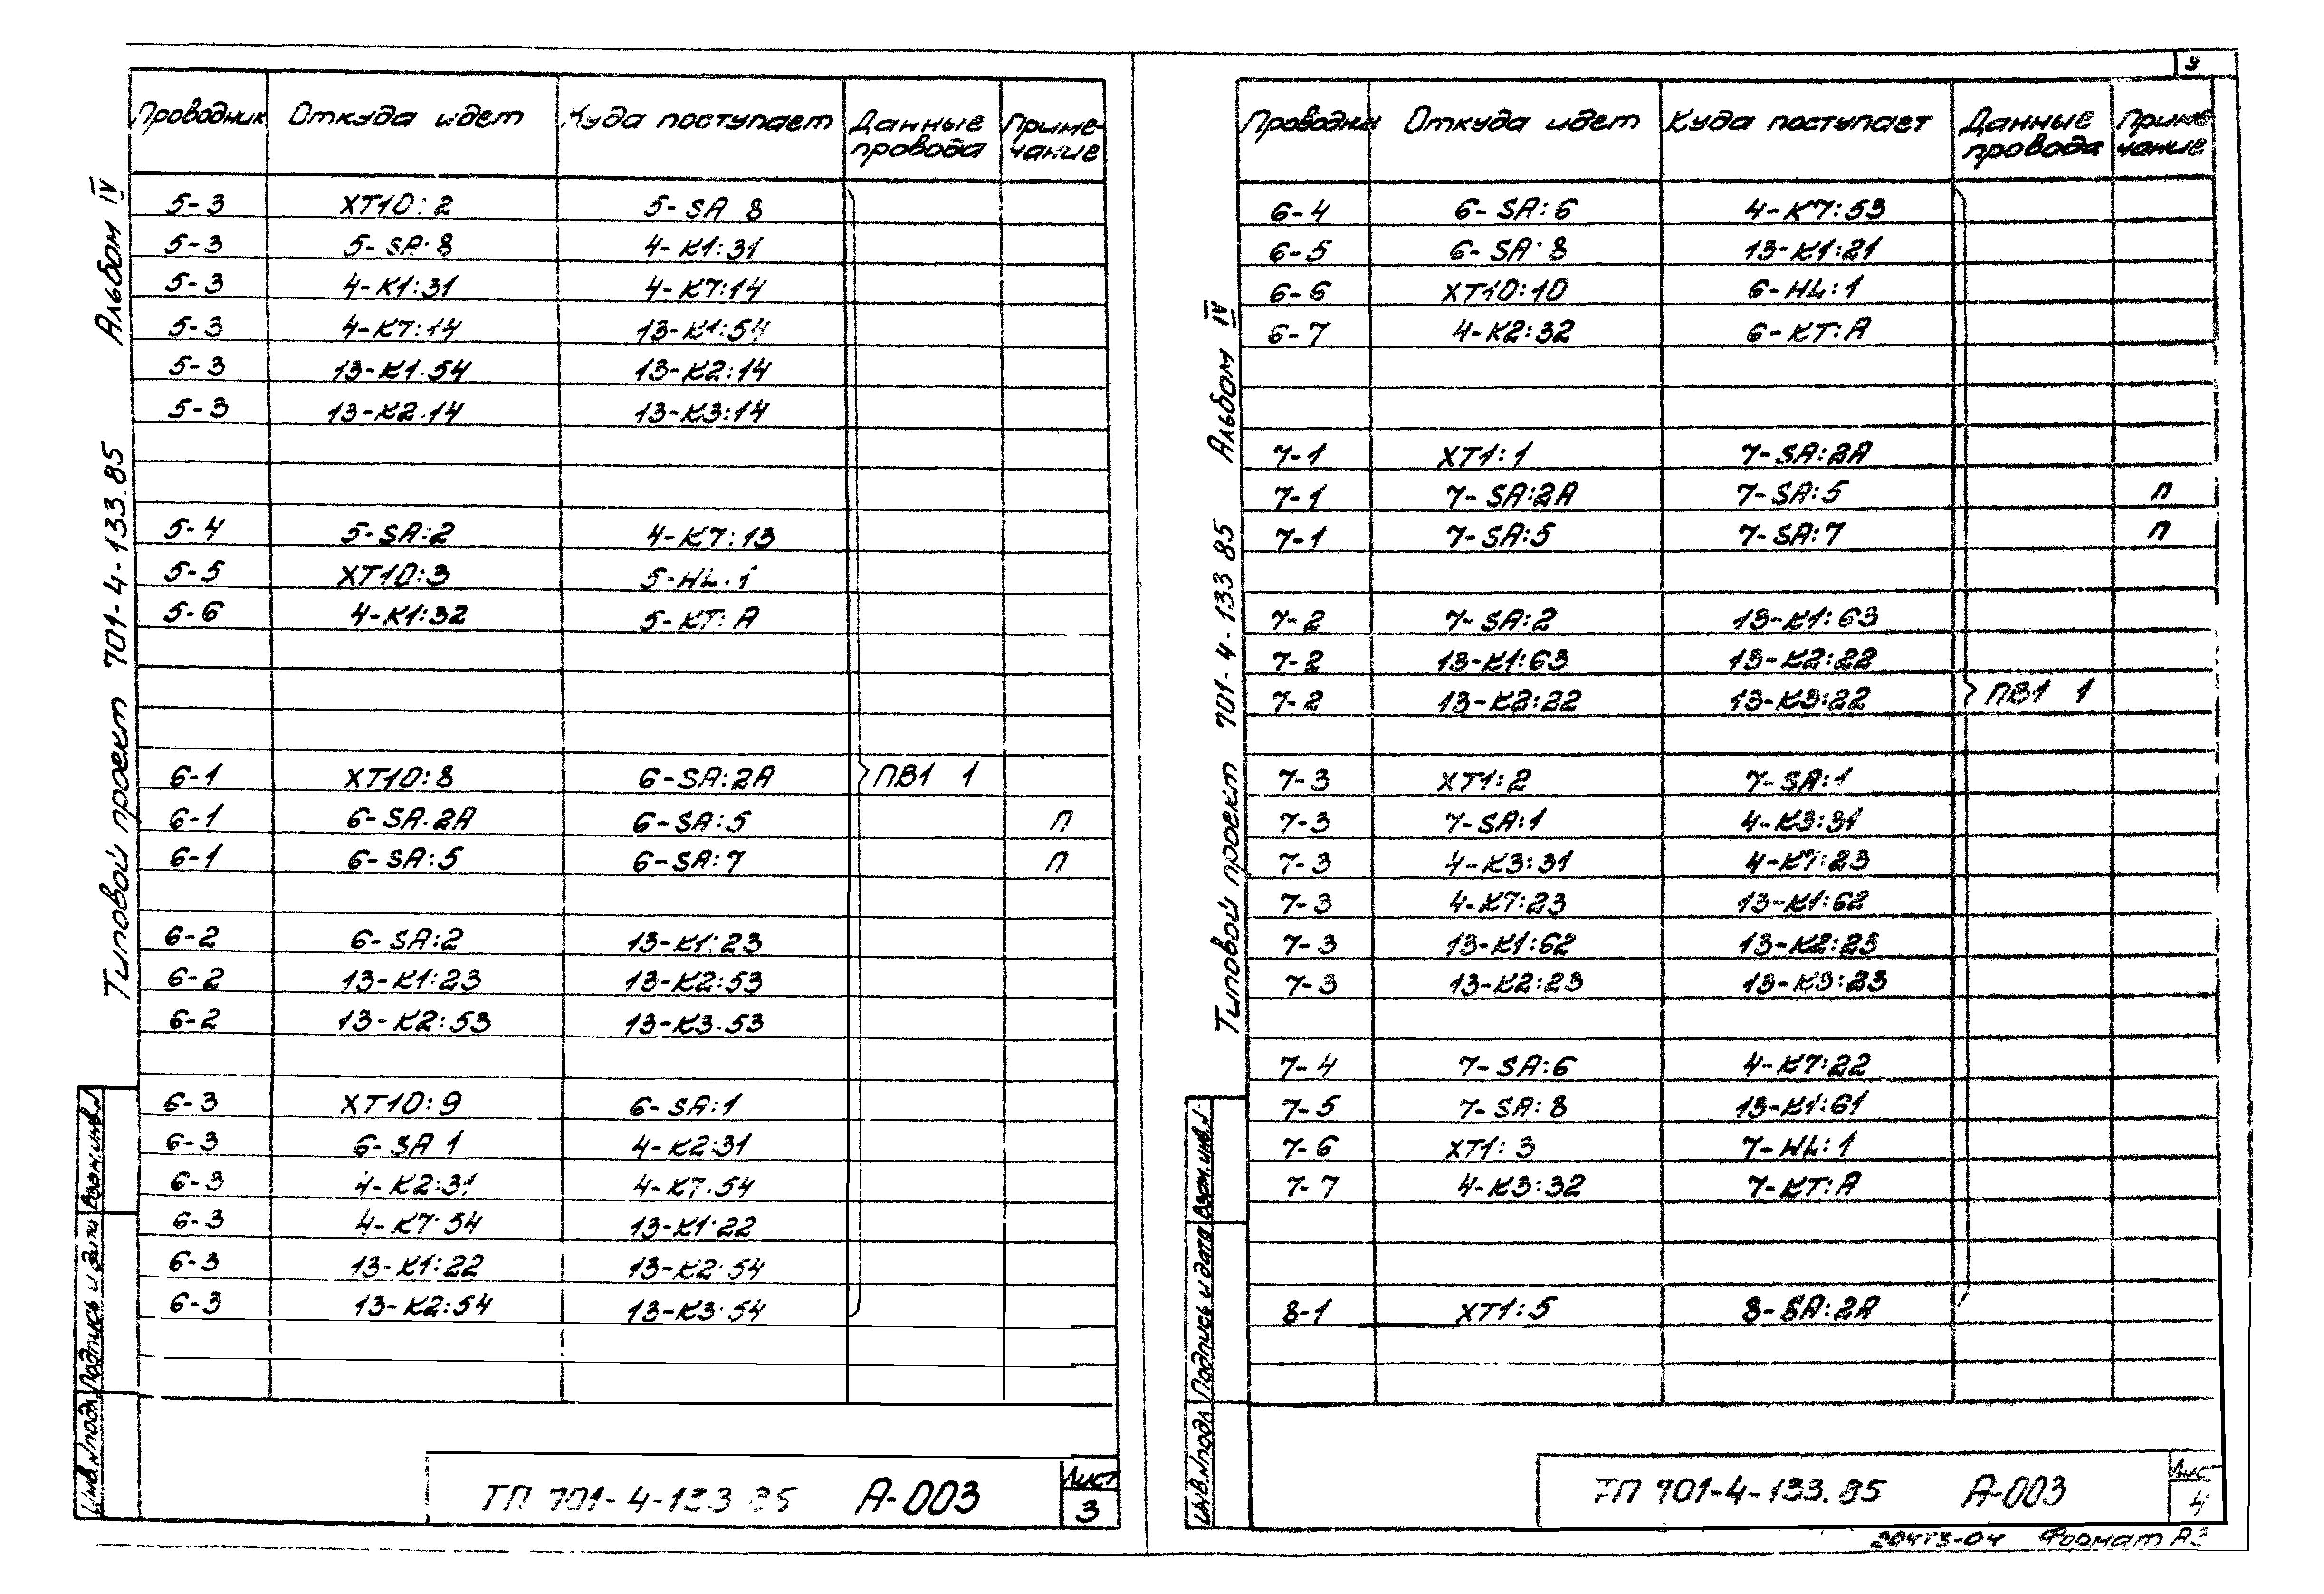 Альбом IV
Типовой проект 701-4-133.85
Проводник Откуда идет Куда поступает Данные провода Примечание
5-3 XT10:2 5-SA 8
5-3 5-SA·8 4-K1:31
5-3 4-K1:31 4-K7:14
5-3 4-K7:14 13-K1:54
5-3 13-K1·54 13-K2:14
5-3 13-K2·14 13-K3:14
5-4 5-SA:2 4-K7:13
5-5 XT10:3 5-HL·1
5-6 4-K1:32 5-KT:A
6-1 XT10:8 6-SA:2A ПВ1 1
6-1 6-SA·2A 6-SA:5 П
6-1 6-SA:5 6-SA:7 П
6-2 6-SA:2 13-K1:23
6-2 13-K1:23 13-K2:53
6-2 13-K2:53 13-K3·53
6-3 XT10:9 6-SA:1
6-3 6-SA 1 4-K2:31
6-3 4-K2:31 4-K7·54
6-3 4-K7·54 13-K1·22
6-3 13-K1:22 13-K2·54
6-3 13-K2:54 13-K3·54
Инв.N подл. Подпись и дата Взам.инв.N
ТП 701-4-133 85 А-003 Лист 3
9
Альбом IV
Типовой проект 701-4-133 85
Проводник Откуда идет Куда поступает Данные провода Примечание
6-4 6-SA:6 4-K7:53
6-5 6-SA·8 13-K1:21
6-6 XT10:10 6-HL:1
6-7 4-K2:32 6-KT:A
7-1 XT1:1 7-SA:2A
7-1 7-SA:2A 7-SA:5 П
7-1 7-SA:5 7-SA:7 П
7-2 7-SA:2 13-K1:63
7-2 13-K1:63 13-K2:22
7-2 13-K2:22 13-K3:22 ПВ1 1
7-3 XT1:2 7-SA:1
7-3 7-SA:1 4-K3:31
7-3 4-K3:31 4-K7:23
7-3 4-K7:23 13-K1:62
7-3 13-K1:62 13-K2:23
7-3 13-K2:23 13-K3:23
7-4 7-SA:6 4-K7:22
7-5 7-SA:8 13-K1:61
7-6 XT1:3 7-HL:1
7-7 4-K3:32 7-KT:A
8-1 XT1:5 8-SA:2A
Инв.N подл Подпись и дата Взам.инв.N
ТП 701-4-133.85 А-003 Лис 4
20473-04 Формат А3